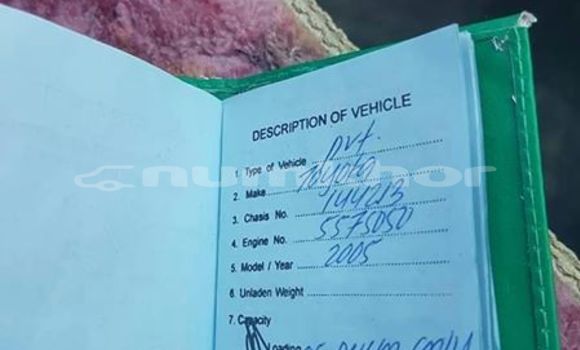 DESCRIPTION OF VEHICLE
1. Type of Vehicle pvt.
2. Make Toyota
3. Chasis No. 144213
4. Engine No. 5575050
5. Model / Year 2005
6. Unladen Weight
7. Capacity
Loading only